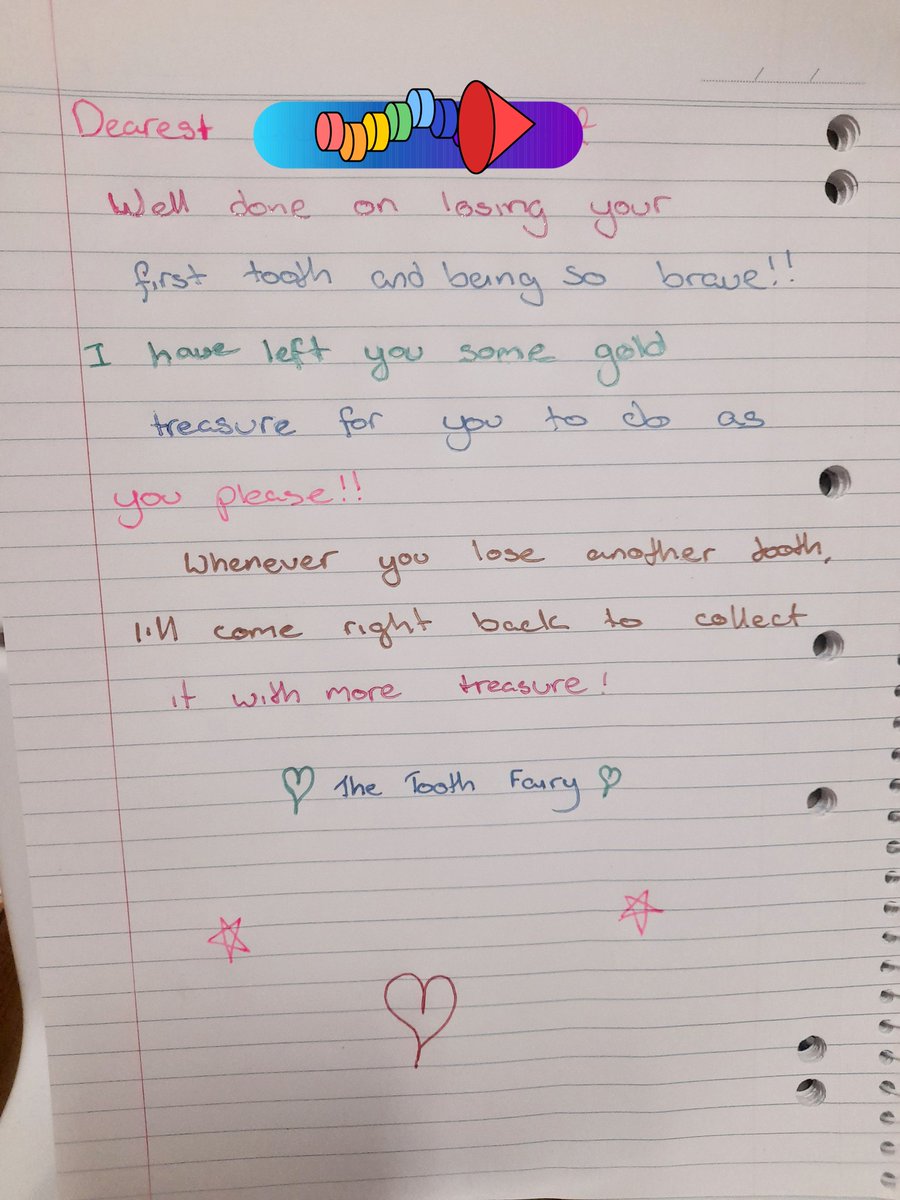 Dearest
Well done on losing your
first tooth and being so brave!!
I have left you some gold
treasure for you to do as
you please!!
Whenever you lose another tooth,
I'll come right back to collect
it with more treasure!
♡ The Tooth Fairy ♡